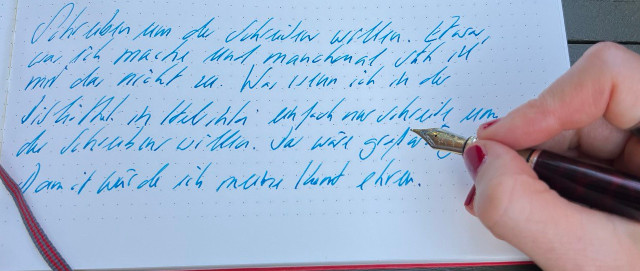 Schreiben um des Schreibens willen. Etwas,
was ich mache und manchmal
mir das nicht zu. Was wenn ich in der
einfach nur schreibe um
des Schreibens willen. Das wäre großartig
Damit würde ich meine Kunst ehren.